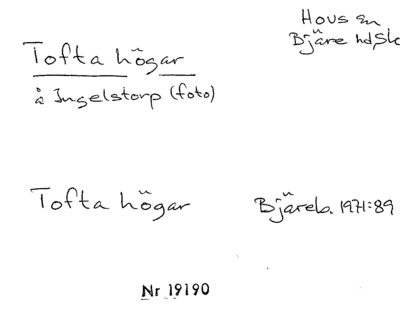 Hovs sn
Bjäre hd, Sk
Tofta högar
å Ingelstorp (foto)
Tofta högar
Bjäreb. 1971:89
Nr 19190